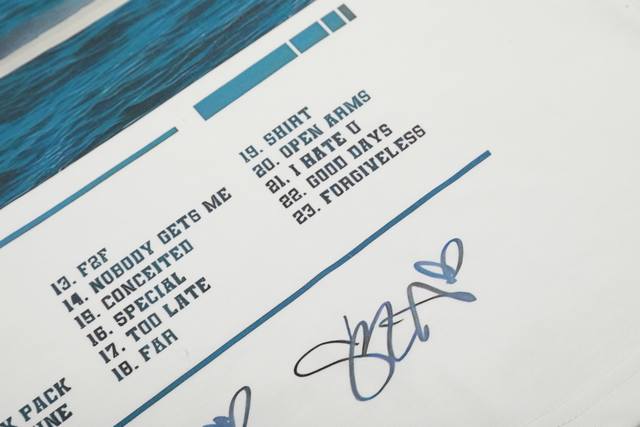 K PACK
INE
13. F2F
14. NOBODY GETS ME
15. CONCEITED
16. SPECIAL
17. TOO LATE
18. FAR
19. SHIRT
20. OPEN ARMS
21. I HATE U
22. GOOD DAYS
23. FORGIVELESS
SZA